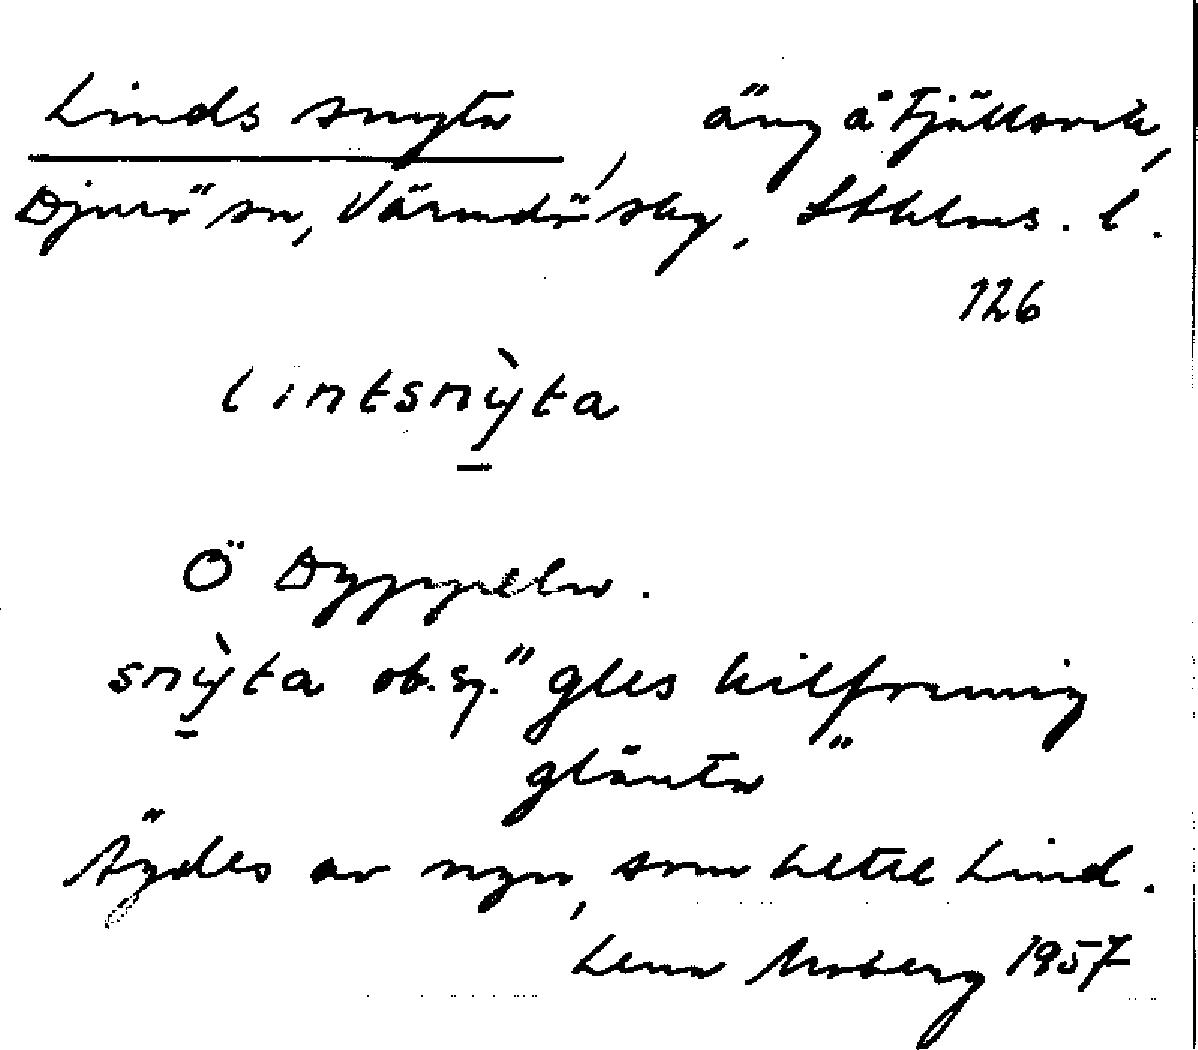 Linds snyta, äng å Fjällsvik,
Djurö sn, Värmdö skg, Sthlms. l.
126
lintsnỳta
Ö Dyppeln.
snỳta ob. sg. "gles kilformig
glänta"
Ägdes av ngn, som hette Lind.
Lena Moberg 1957